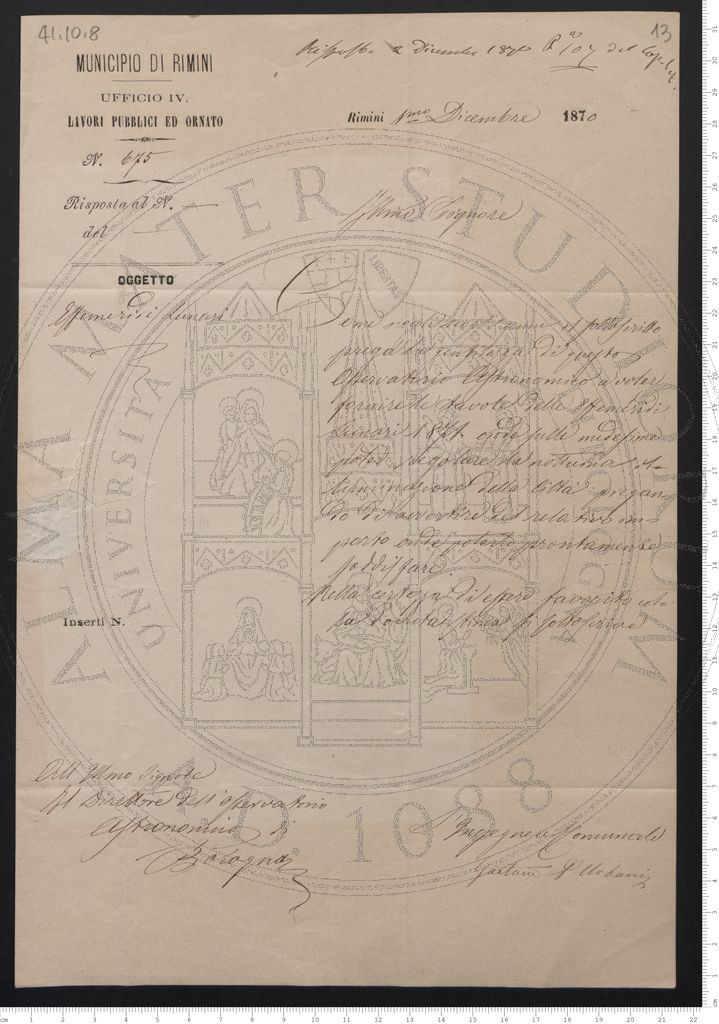 41.10.8
13
Risposto 2 Dicembre 1870 P. n° 107 del Cop. Let.
MUNICIPIO DI RIMINI
UFFICIO IV.
LAVORI PUBBLICI ED ORNATO
N. 675
Risposta al N.
del
OGGETTO
Effemeridi Lunari
Rimini pmo Dicembre 1870
Illmo Signore
Come negli scorsi anni il sottoscritto
prega la gentilezza di questo
Osservatorio Astronomico a voler
fornire le tavole delle Effemeridi
Lunari 1871 onde sulle medesime
poter regolare la notturna il-
luminazione della Città pregan-
do di avvertire del relativo im-
porto onde poterlo prontamente
soddisfare.
Nella certezza di essere favorito col-
la dovuta stima si sottoscrive
Inserti N.
All' Illmo Signore
Il Direttore dell'Osservatorio
Astronomico di
Bologna
L'Ingegnere Comunale
Gaetano Urbani
ALMA MATER STUDIORUM
UNIVERSITÀ
LIBERTAS
A.D. 1088